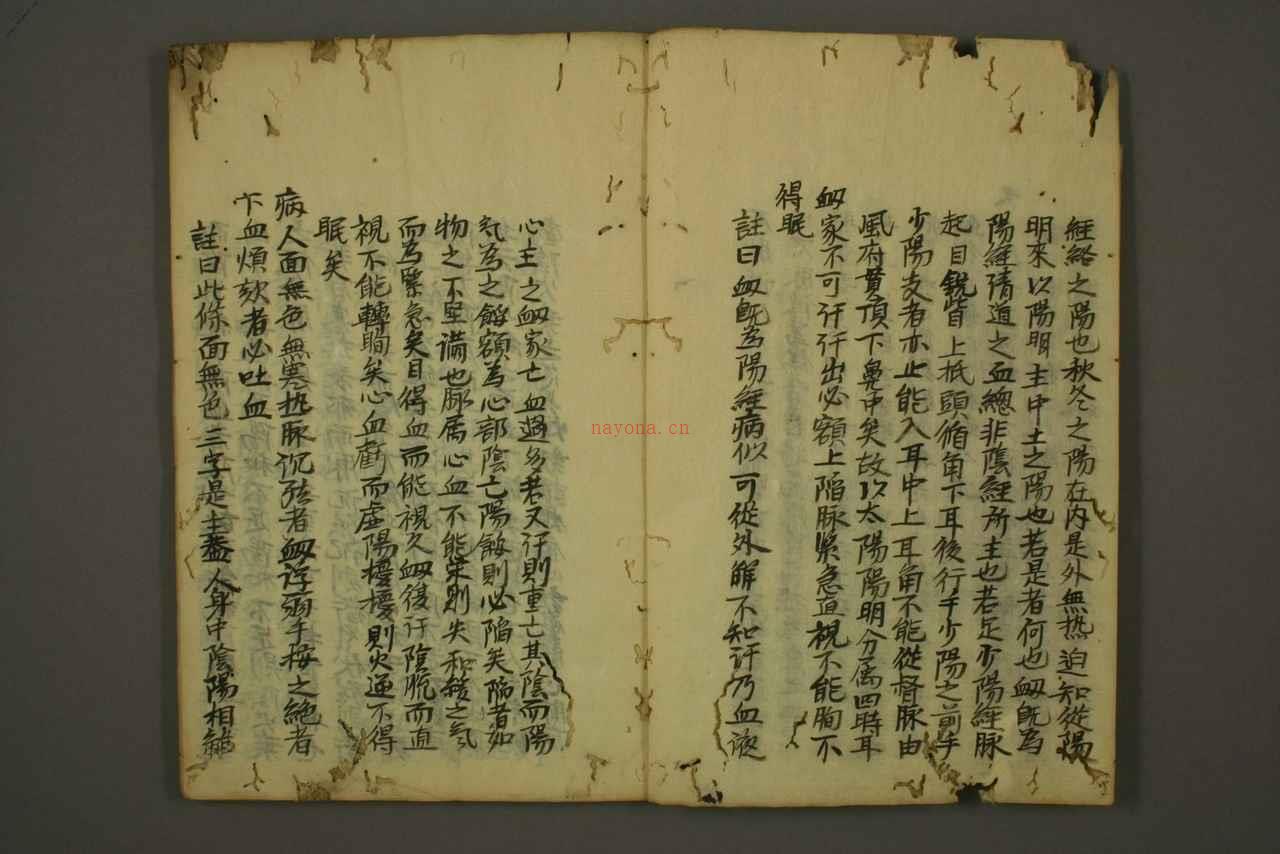 經絡之陽也秋冬之陽在内是外無热迫知從陽
明來以陽明主中土之陽也若是者何也衂既為
陽經清道之血總非陰經所主也若足少陽經脉
起目銳眥上抵頭循角下耳後行手少陽之前手
少陽支者亦止能入耳中上耳角不能從督脉由
風府貫頂下鼻中矣故以太陽陽明分属四時耳
衂家不可汗汗出必額上陷脉緊急直視不能眴不
得眠
註曰衂既為陽經病似可從外解不知汗乃血液
nayona.cn
心主之衂家亡血過多若又汗則重亡其陰而陽
氣為之餒額為心部陰亡陽餒則必陷矣陷者如
物之不堅滿也脉属心血不能榮則失和緩之氣
而為緊急矣目得血而能視久衂復汗陰脱而直
視不能轉眴矣心血虧而虚陽擾擾則火逼不得
眠矣
病人面無色無寒热脉沉弦者衂浮弱手按之絶者
下血煩欬者必吐血
註曰此條面無色三字是主蓋人身中陰陽相維